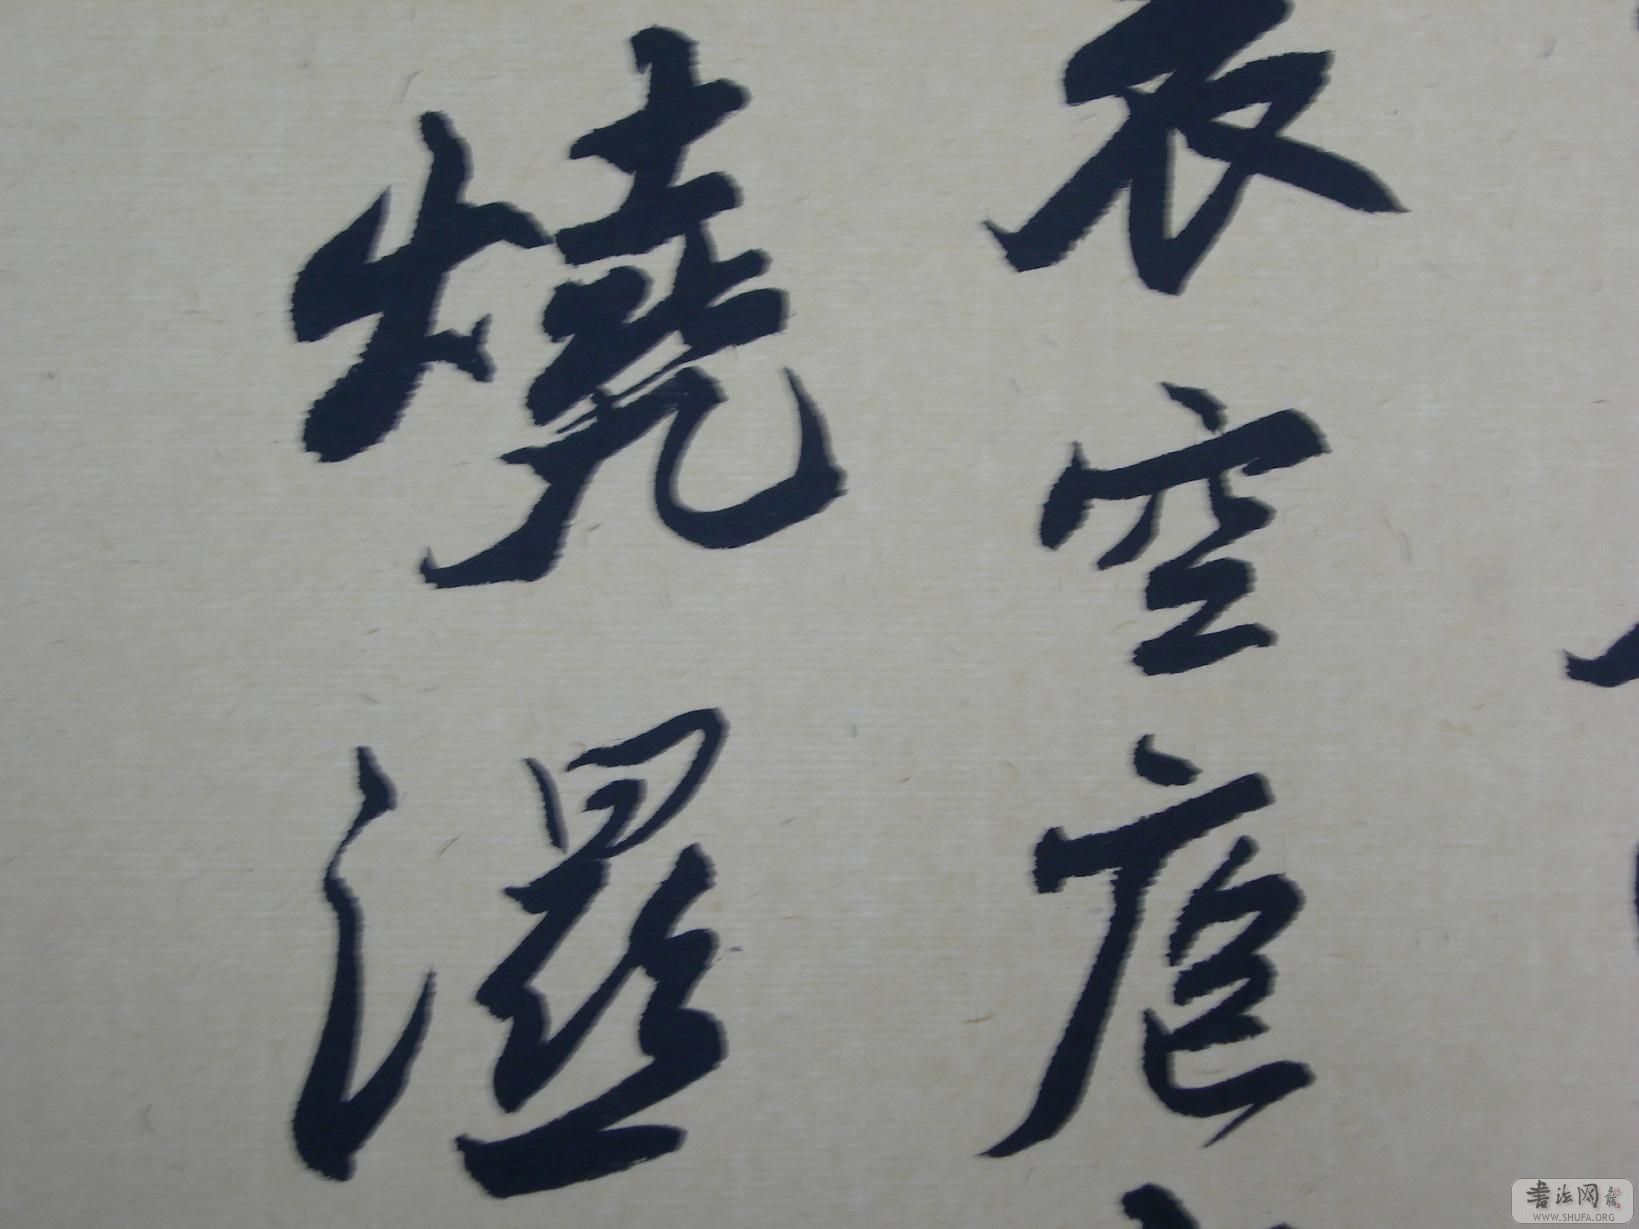 空庖
燒濕
書法网
WWW.SHUFA.ORG